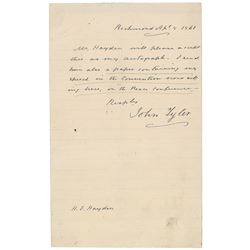 Richmond Apl. 4 1861
Mr. Hayden will please accept
this as my autograph. I send
him also a paper containing my
speech in the Convention now sitt
ing here, on the Peace Conference.
Resply
John Tyler
H. S. Hayden